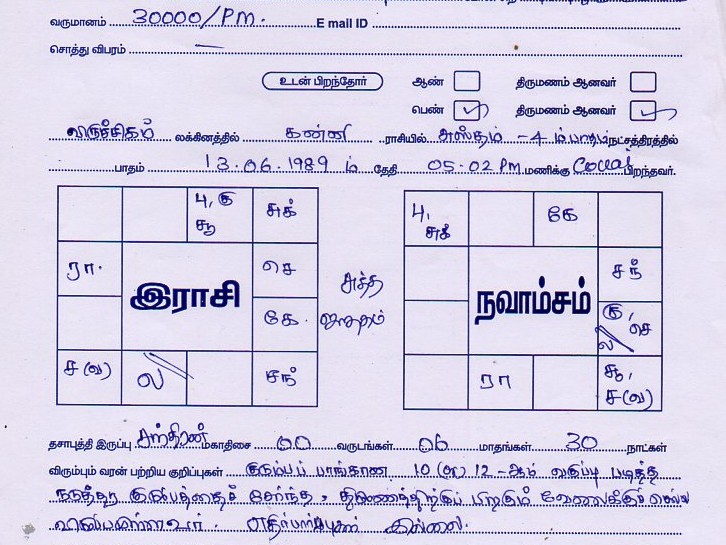 வருமானம் 30000/PM. E mail ID
சொத்து விபரம் —
உடன் பிறந்தோர் ஆண் திருமணம் ஆனவர்
பெண் ✓ திருமணம் ஆனவர் ✓
விருச்சிகம் லக்கினத்தில் கன்னி ராசியில் அஸ்தம் - 4 ம் பாதம் நட்சத்திரத்தில்
பாதம் 13.06.1989 ம் தேதி 05.02 PM மணிக்கு Covai பிறந்தவர்.
பு, கு சுக்
சூ
ரா. செ
இராசி
கே.
ச (வ) ல சந்
சுத்த
ஜாதகம்
பு, கே
சுக்
சந்
நவாம்சம்
கு, செ
ல
ரா சூ,
ச (வ)
தசாபுத்தி இருப்பு சந்திரன் மகாதிசை 00 வருடங்கள் 06 மாதங்கள் 30 நாட்கள்
விரும்பும் வரன் பற்றிய குறிப்புகள் குடும்பப் பாங்கான 10 (அ) 12-ஆம் வகுப்பு படித்த
நடுத்தர குடும்பத்தைச் சேர்ந்த, திருமணத்திற்குப் பிறகும் வேலைக்குச் செல்ல
விருப்பமுள்ளவர். எதிர்பார்ப்புகள் இல்லை.